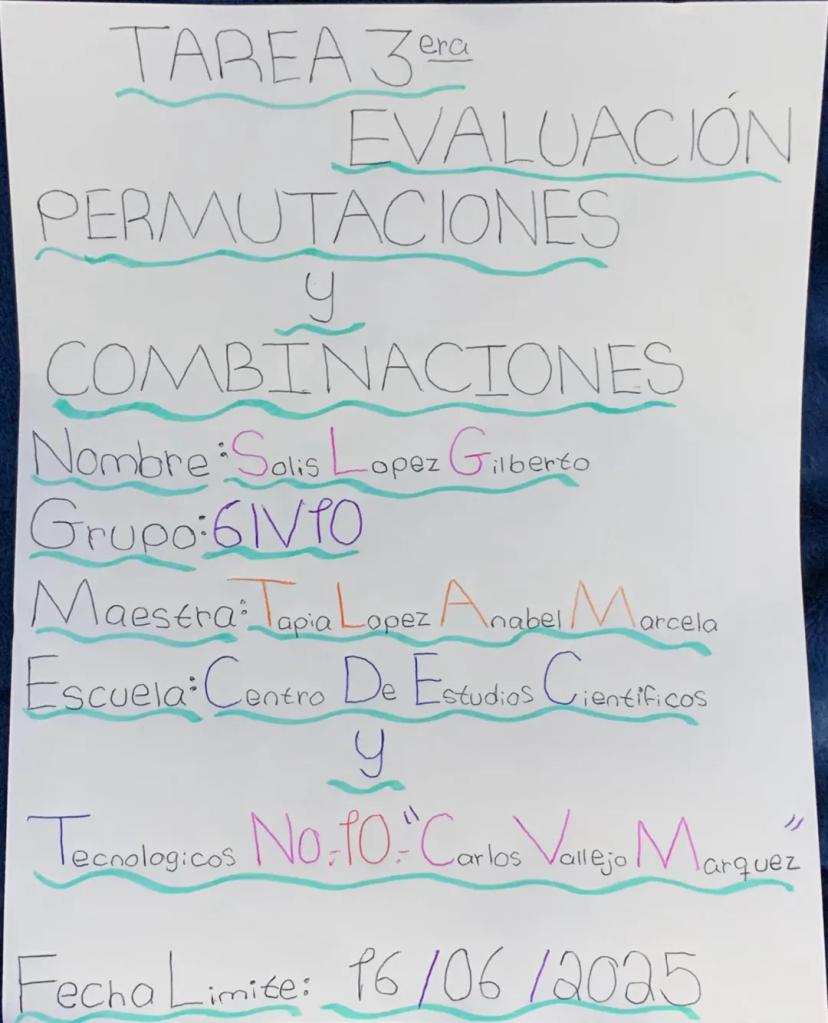 TAREA 3era
EVALUACIÓN
PERMUTACIONES
y
COMBINACIONES
Nombre: Solis Lopez Gilberto
Grupo: 6IV10
Maestra: Tapia Lopez Anabel Marcela
Escuela: Centro De Estudios Cientificos
y
Tecnologicos No.-10.-"Carlos Vallejo Marquez"
Fecha Limite: 16/06/2025